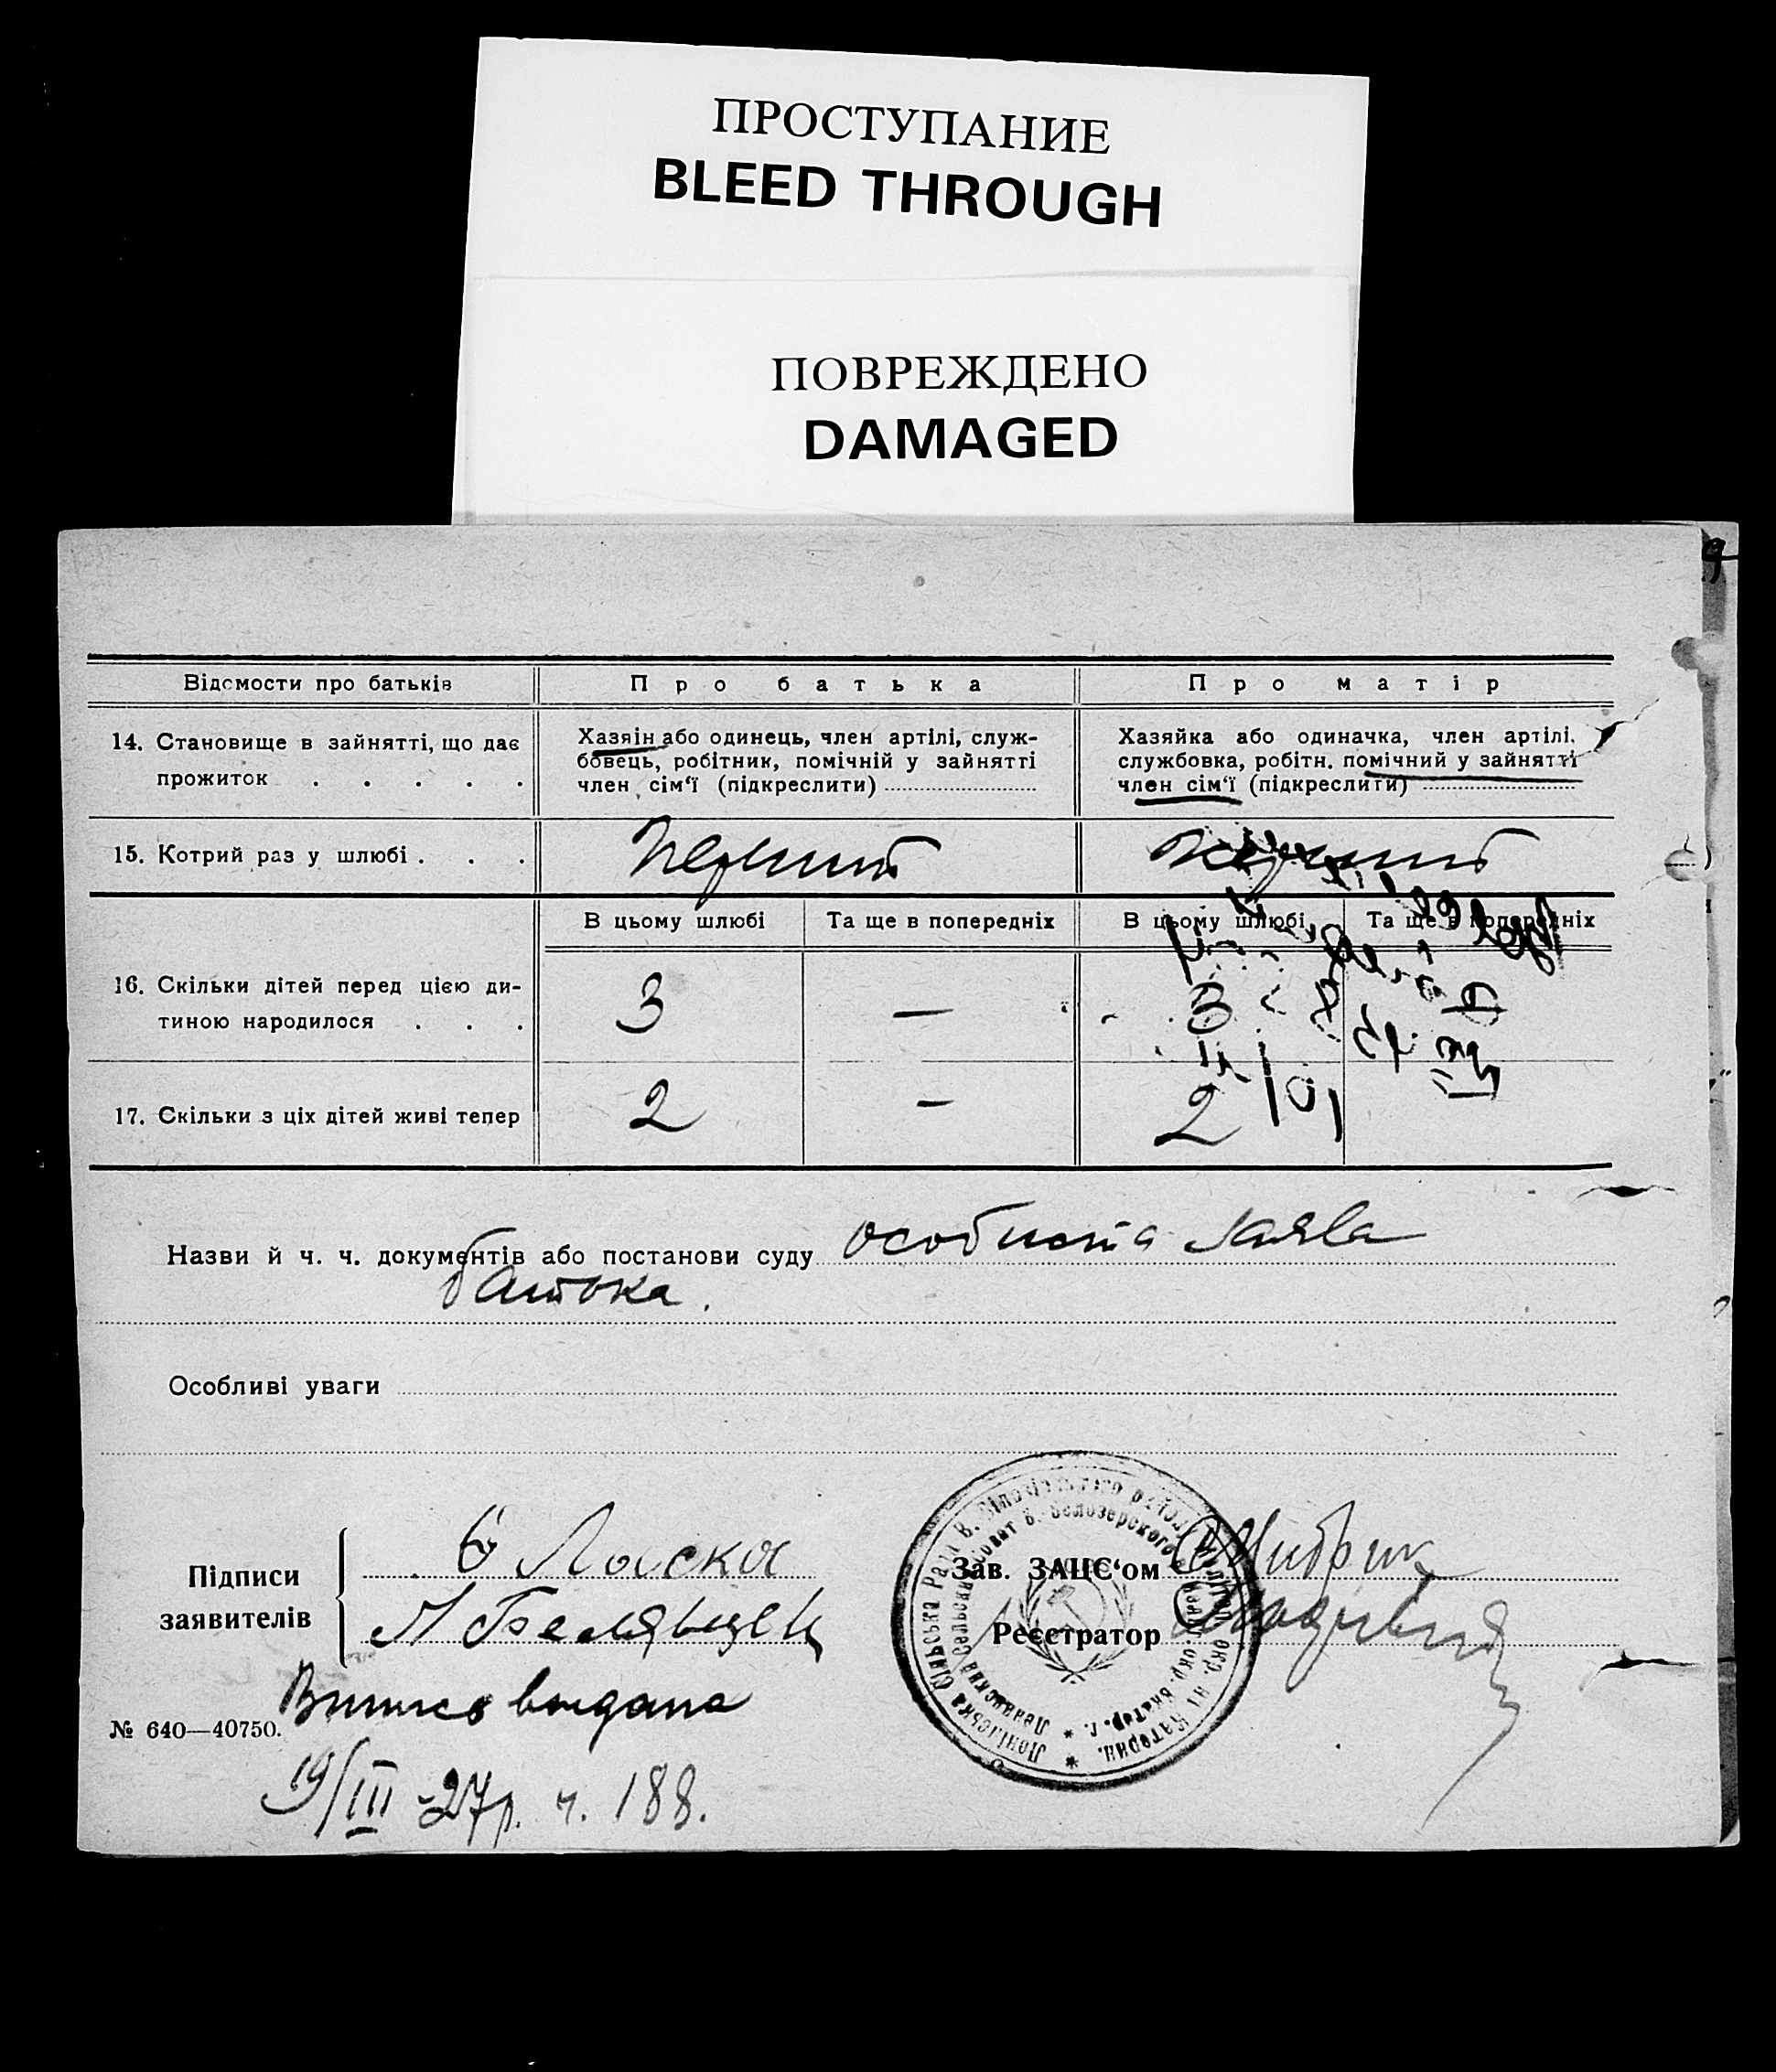 ПРОСТУПАНИЕ
BLEED THROUGH
ПОВРЕЖДЕНО
DAMAGED
9
Відомости про батьків
Про батька
Про матір
14. Становище в зайнятті, що дає
прожиток . . . . .
Хазяїн або одинець, член артілі, служ-
бовець, робітник, помічній у зайнятті
член сім‘ї (підкреслити)
Хазяйка або одиначка, член артілі,
службовка, робітн. помічний у зайнятті
член сім‘ї (підкреслити)
15. Котрий раз у шлюбі . . .
перший
перший
В цьому шлюбі
Та ще в попередніх
В цьому шлюбі
Та ще в попередніх
16. Скільки дітей перед цією ди-
тиною народилося . . .
3
—
3
17. Скільки з ціх дітей живі тепер
2
—
2
Назви й ч. ч. документів або постанови суду особиста заява
батька.
Особливі уваги
Підписи
заявителів
Ласка
Зав. ЗАЦС‘ом
Реєстратор
Випись видана
№ 640—40750.
19/III -27р. ч. 188.